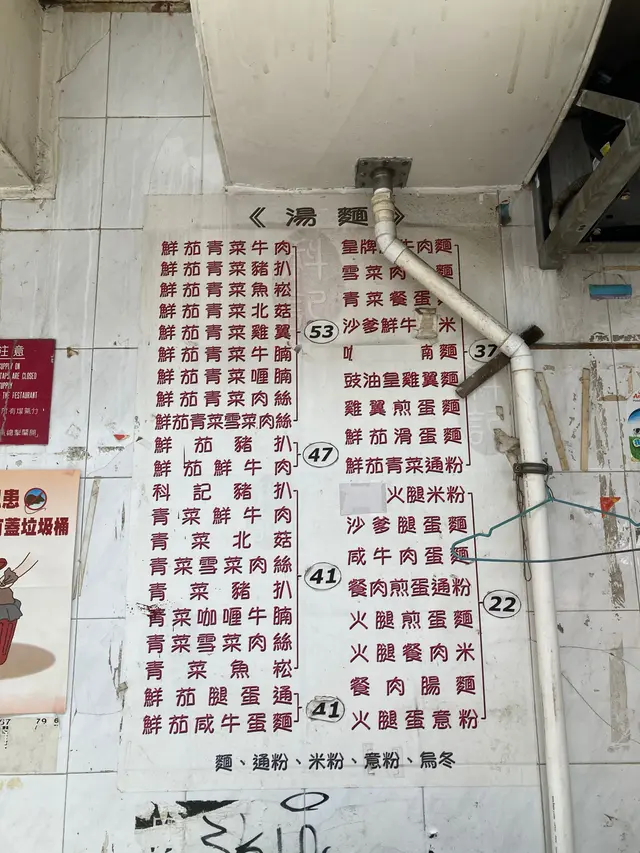 《湯麵》
鮮茄青菜牛肉
鮮茄青菜豬扒
鮮茄青菜魚崧
鮮茄青菜北菇
鮮茄青菜雞翼
鮮茄青菜牛腩
鮮茄青菜喱腩
鮮茄青菜肉絲
鮮茄青菜雪菜肉絲
53
鮮茄豬扒
鮮茄鮮牛肉
47
科記豬扒
青菜鮮牛肉
青菜北菇
青菜雪菜肉絲
青菜豬扒
青菜咖喱牛腩
青菜雪菜肉絲
青菜魚崧
41
鮮茄腿蛋通
鮮茄咸牛蛋麵
41
皇牌牛肉麵
雪菜肉麵
青菜餐蛋麵
沙爹鮮牛米
南麵
豉油皇雞翼麵
雞翼煎蛋麵
鮮茄滑蛋麵
鮮茄青菜通粉
37
火腿米粉
沙爹腿蛋麵
咸牛肉蛋麵
餐肉煎蛋通粉
火腿煎蛋麵
火腿餐肉米
餐肉腸麵
火腿蛋意粉
22
麵、通粉、米粉、意粉、烏冬
注意
SUPPLY ON
TAPS ARE CLOSED
SUPPLY
THE RESTAURANT
患
有蓋垃圾桶
79